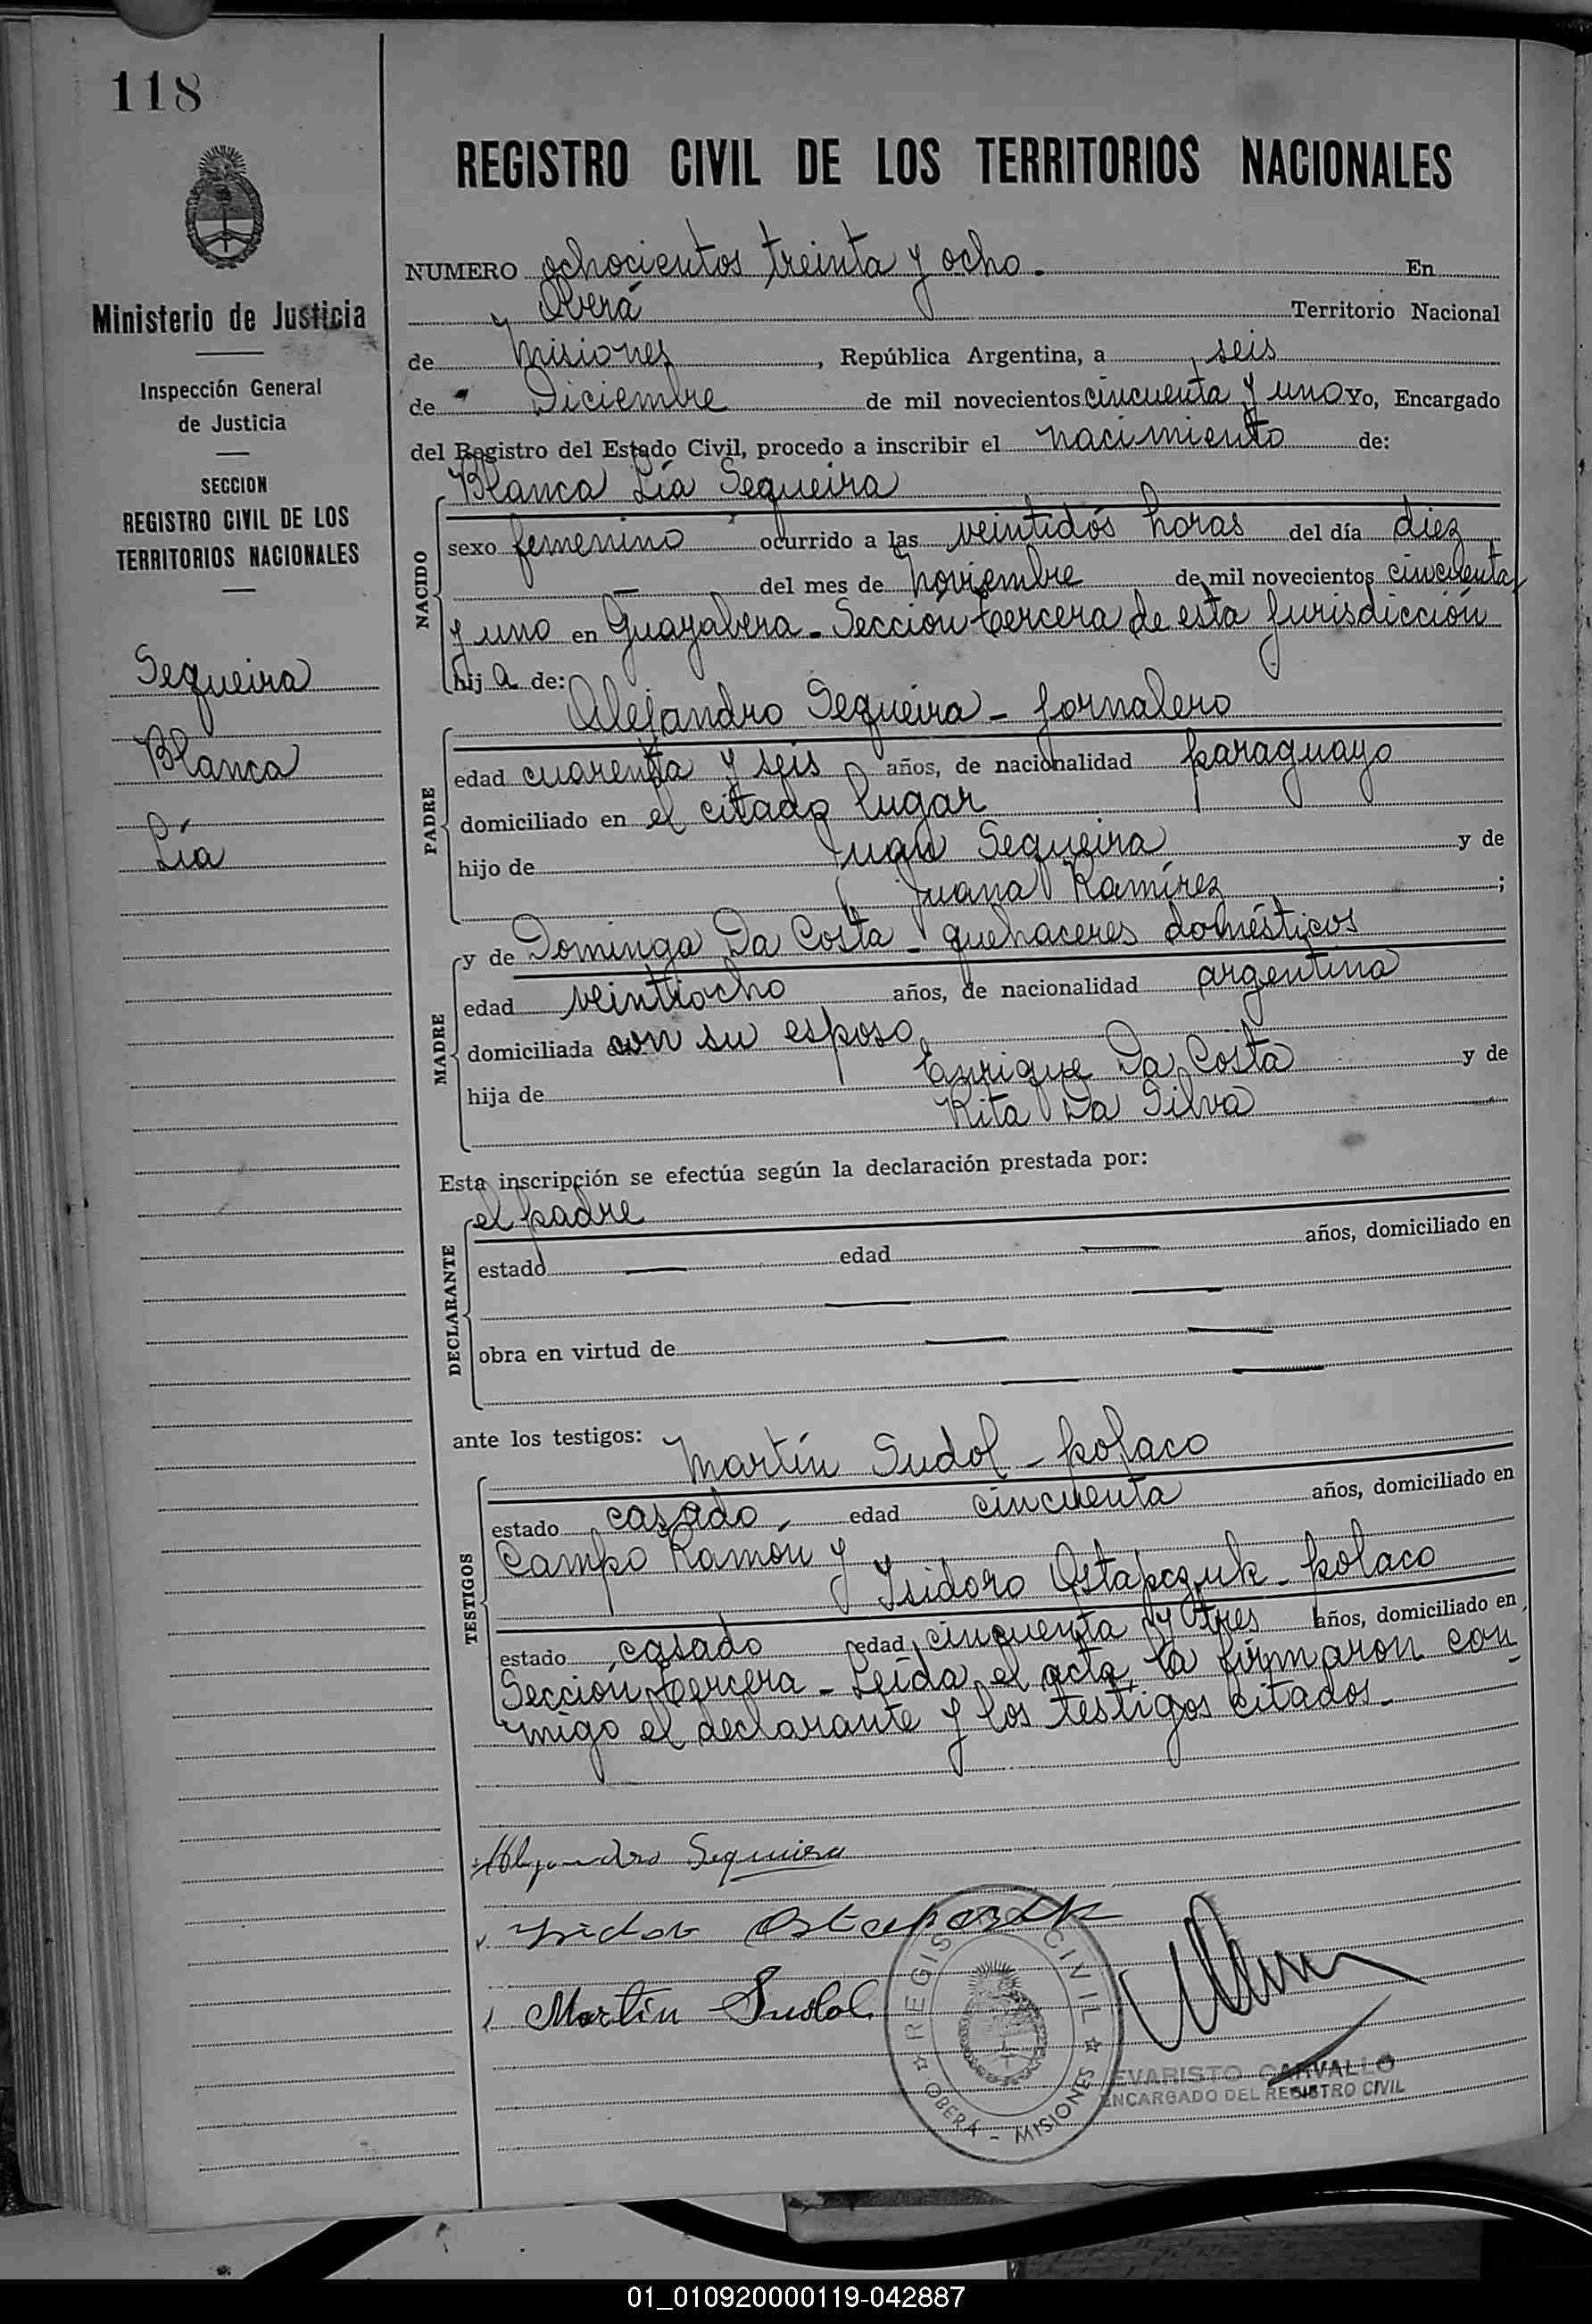 118
REGISTRO CIVIL DE LOS TERRITORIOS NACIONALES
Ministerio de Justicia
Inspección General
de Justicia
SECCION
REGISTRO CIVIL DE LOS
TERRITORIOS NACIONALES
Sequeira
Blanca
Lía
NUMERO ochocientos treinta y ocho. En
Oberá Territorio Nacional
de Misiones, República Argentina, a seis
de Diciembre de mil novecientos cincuenta y uno Yo, Encargado
del Registro del Estado Civil, procedo a inscribir el nacimiento de:
NACIDO
Blanca Lía Sequeira
sexo femenino ocurrido a las veintidós horas del día diez
— del mes de noviembre de mil novecientos cincuenta
y uno en Guayabera - Sección tercera de esta Jurisdicción
hij a de:
PADRE
Alejandro Sequeira - Jornalero
edad cuarenta y seis años, de nacionalidad paraguayo
domiciliado en el citado lugar
hijo de Juan Sequeira y de
Juana Ramírez ;
MADRE
y de Dominga Da Costa - quehaceres domésticos
edad veintiocho años, de nacionalidad argentina
domiciliada con su esposo
hija de Enrique Da Costa y de
Rita Da Silva
Esta inscripción se efectúa según la declaración prestada por:
DECLARANTE
el padre
estado — edad — años, domiciliado en
— —
obra en virtud de — —
— —
ante los testigos:
TESTIGOS
Martín Sudol - polaco
estado casado, edad cincuenta años, domiciliado en
Campo Ramón y
Isidoro Ostapczuk - polaco
estado casado edad cincuenta y tres años, domiciliado en
Sección tercera - Leída el acta, la firmaron con-
migo el declarante y los testigos citados.
Alejandro Sequiera
Ostapczuk
Martin Sudol
REGISTRO CIVIL
OBERÁ - MISIONES
EVARISTO CARVALLO
ENCARGADO DEL REGISTRO CIVIL
01_010920000119-042887